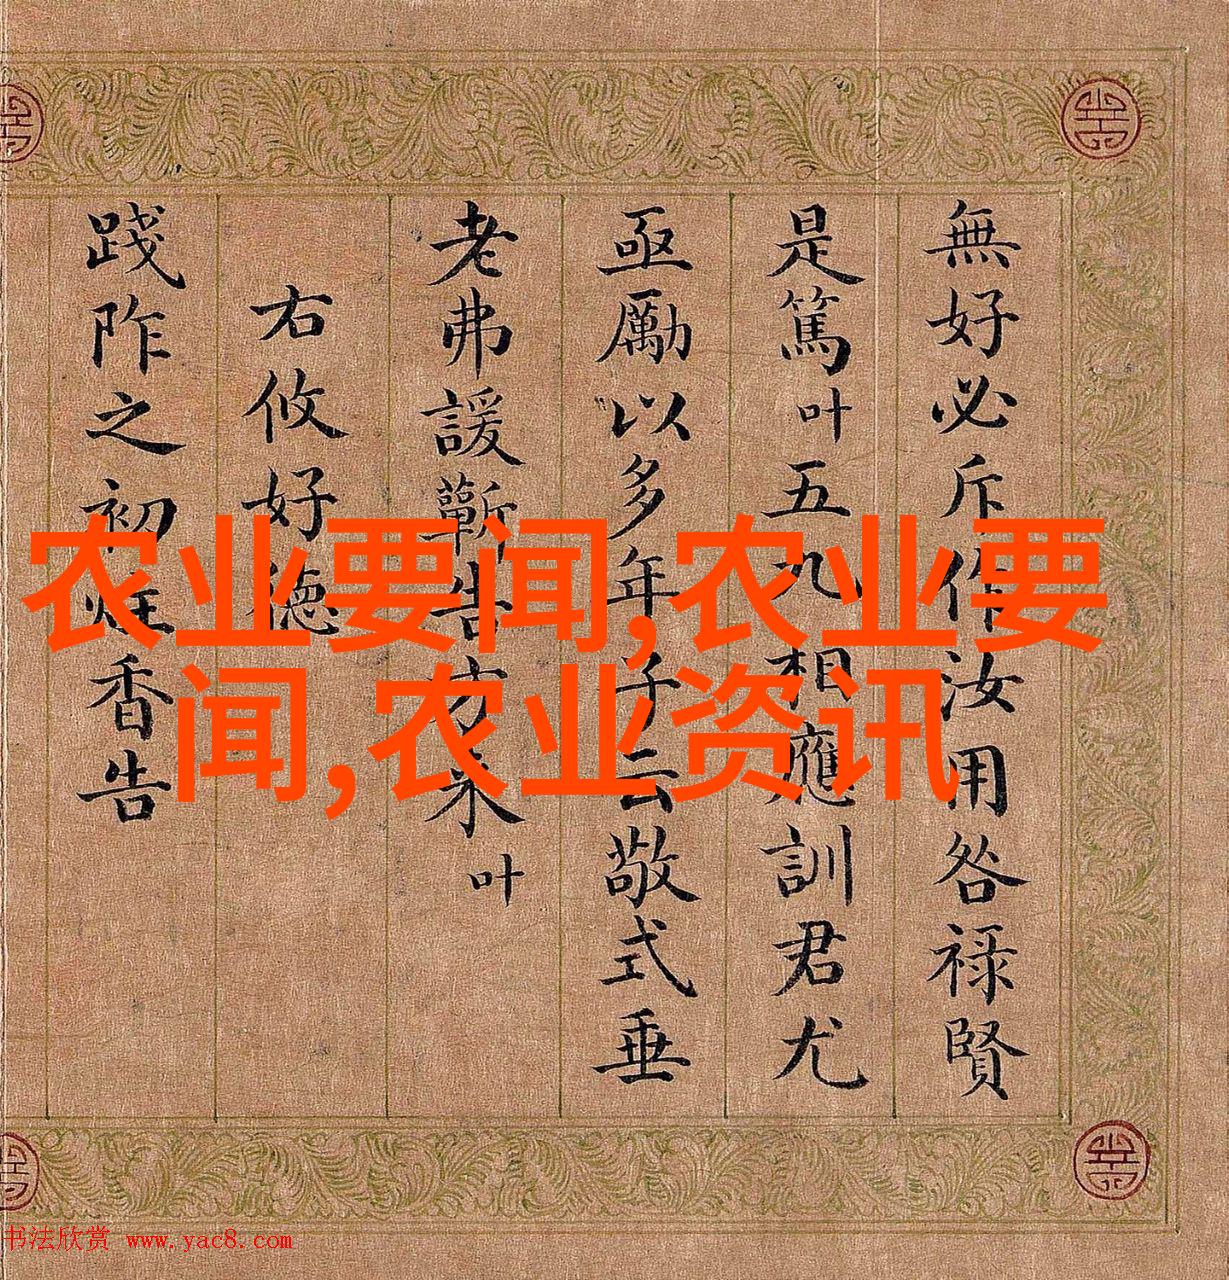 無好必斥作汝用咎祿賢
是篤叶五九相應訓君尤
亟勵以多年子云敬式垂
老弗諼蘄告方来叶
右攸好德
踐阼之初炷香告
农业要闻,农业要
闻,农业资讯
书法欣赏 www.yac8.com